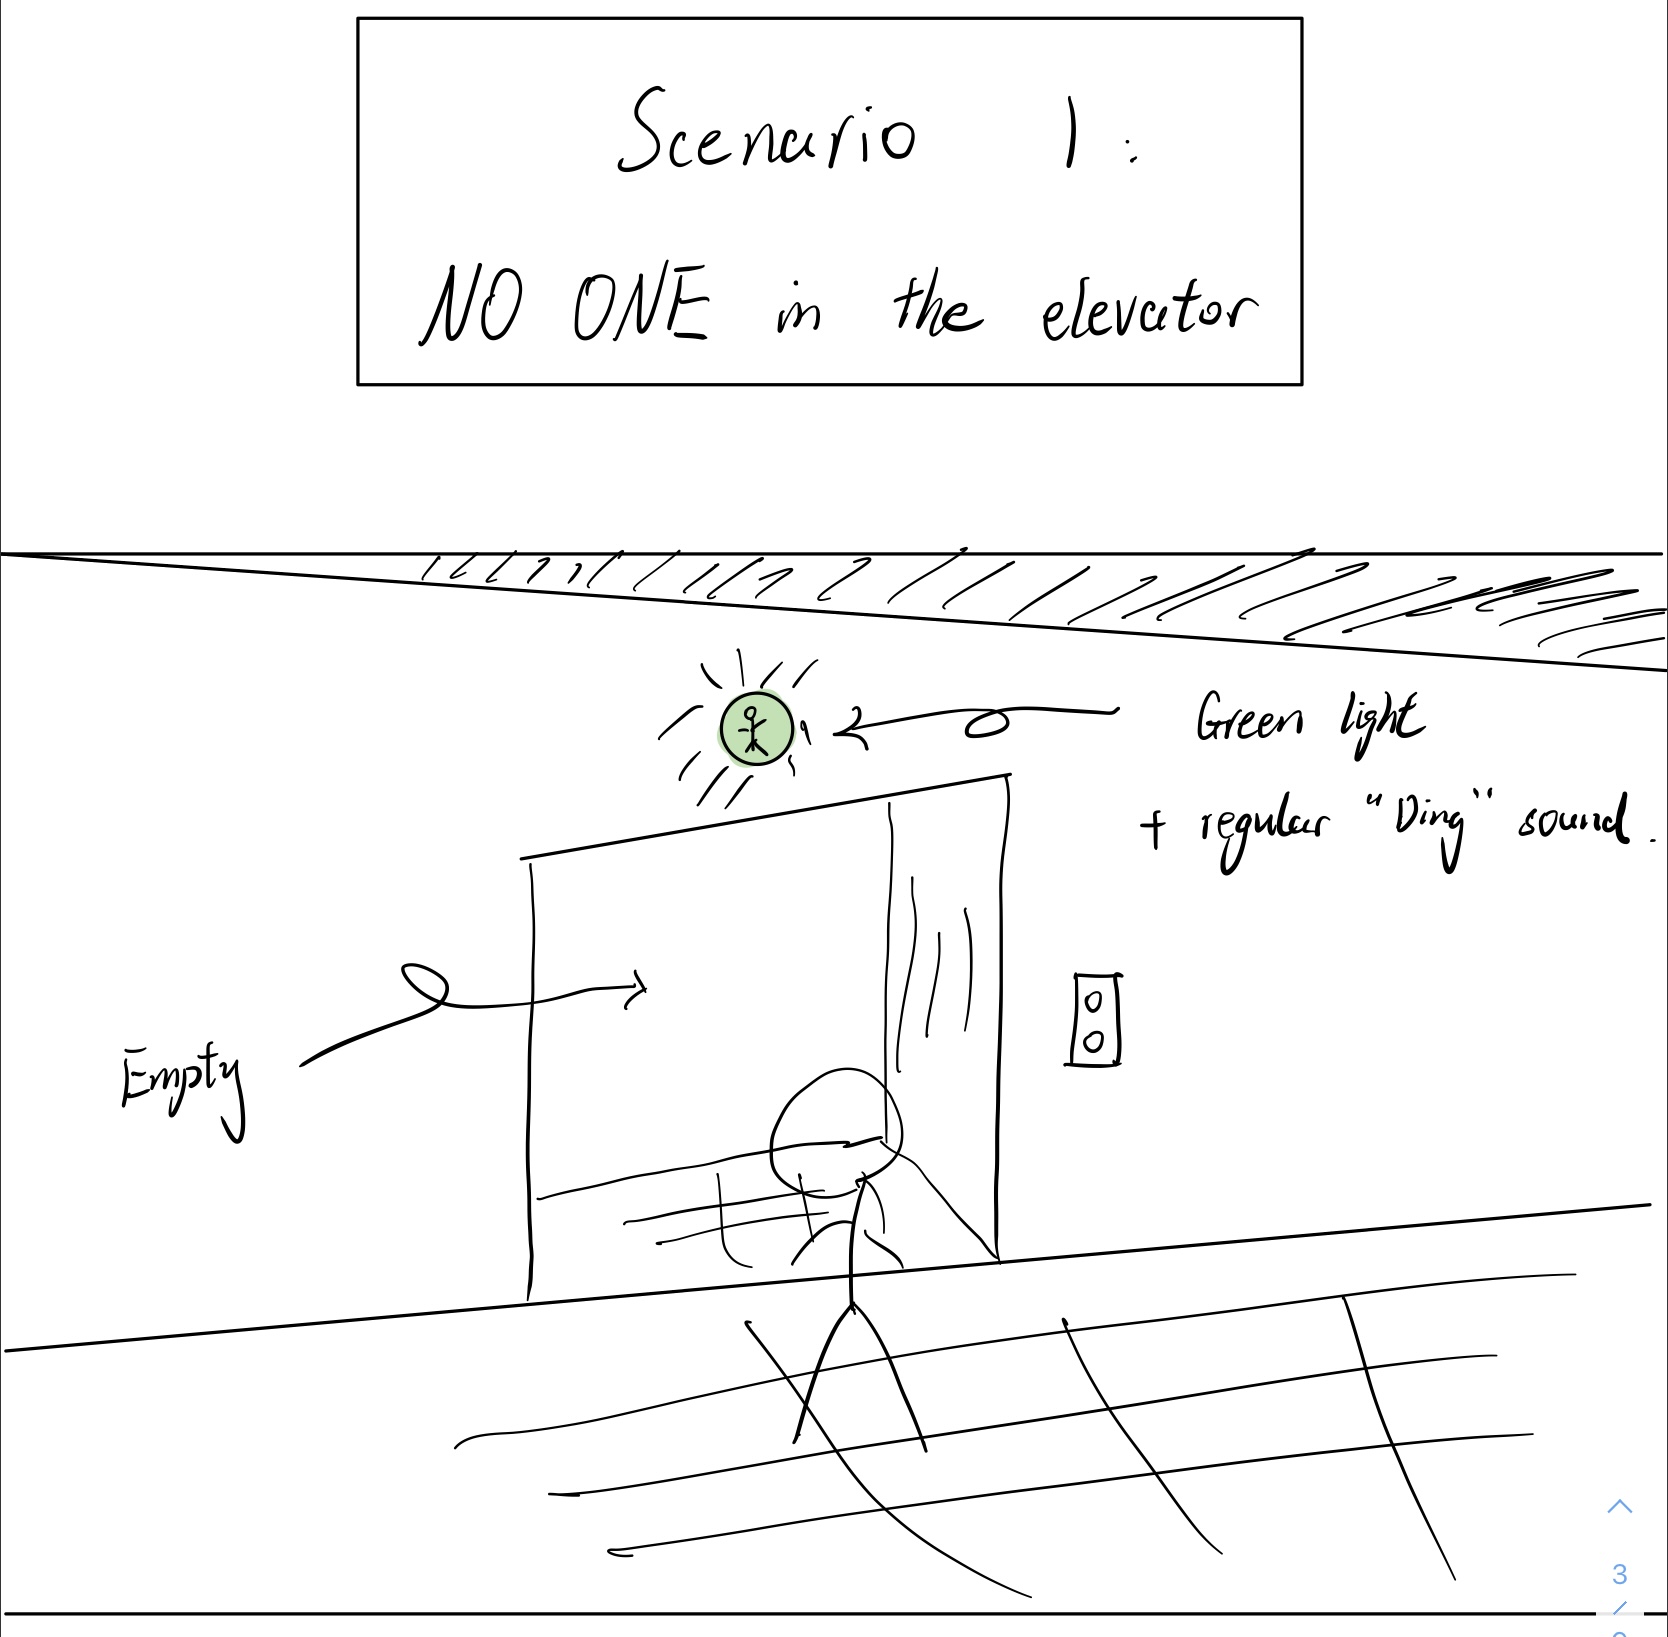 Scenario 1:
NO ONE in the elevator
Green light
+ regular "Ding" sound.
Empty
3
/